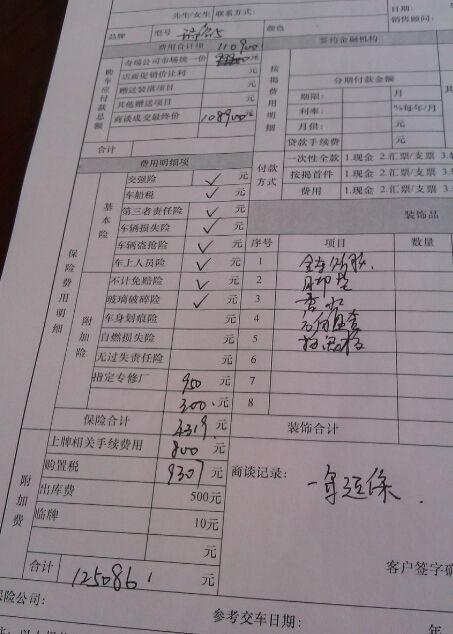 先生/女生 联系方式:
日期:
销售顾问:
品牌 型号 颜色
费用合计项 110900
签约金融机构
购车应付款总额
奇瑞公司市场统一价 元
店面促销价让利 元
赠送装潢项目 元
其他赠送项目 元
商谈成交最终价 108900元
合计
按揭费用明细
分期付款金额
期限: 月
利率: %每年/月
月供: 元
贷款手续费
付款方式
一次性全款 1.现金 2.汇票/支票 3.
按揭首件 1.现金 2.汇票/支票 3.
费用 1.现金 2.汇票/支票 3.
费用明细项
保险费用明细
基本险
交强险 ✓ 元
车船税 ✓ 元
第三者责任险 ✓ 元
车辆损失险 ✓ 元
车辆盗抢险 ✓ 元
车上人员险 ✓ 元
附加险
不计免赔险 ✓ 元
玻璃破碎险 ✓ 元
车身划痕险 元
自燃损失险 元
无过失责任险 元
指定专修厂 950 元
300 元
保险合计 4319 元
装饰品
序号 项目 数量
1
2
3 香水
4
5
6
7
8
装饰合计
附加费
上牌相关手续费用 800 元
购置税 9307 元
出库费 500元
临牌 10元
元
合计 125086 元
商谈记录:
一年延保.
客户签字确
保险公司:
参考交车日期: 年